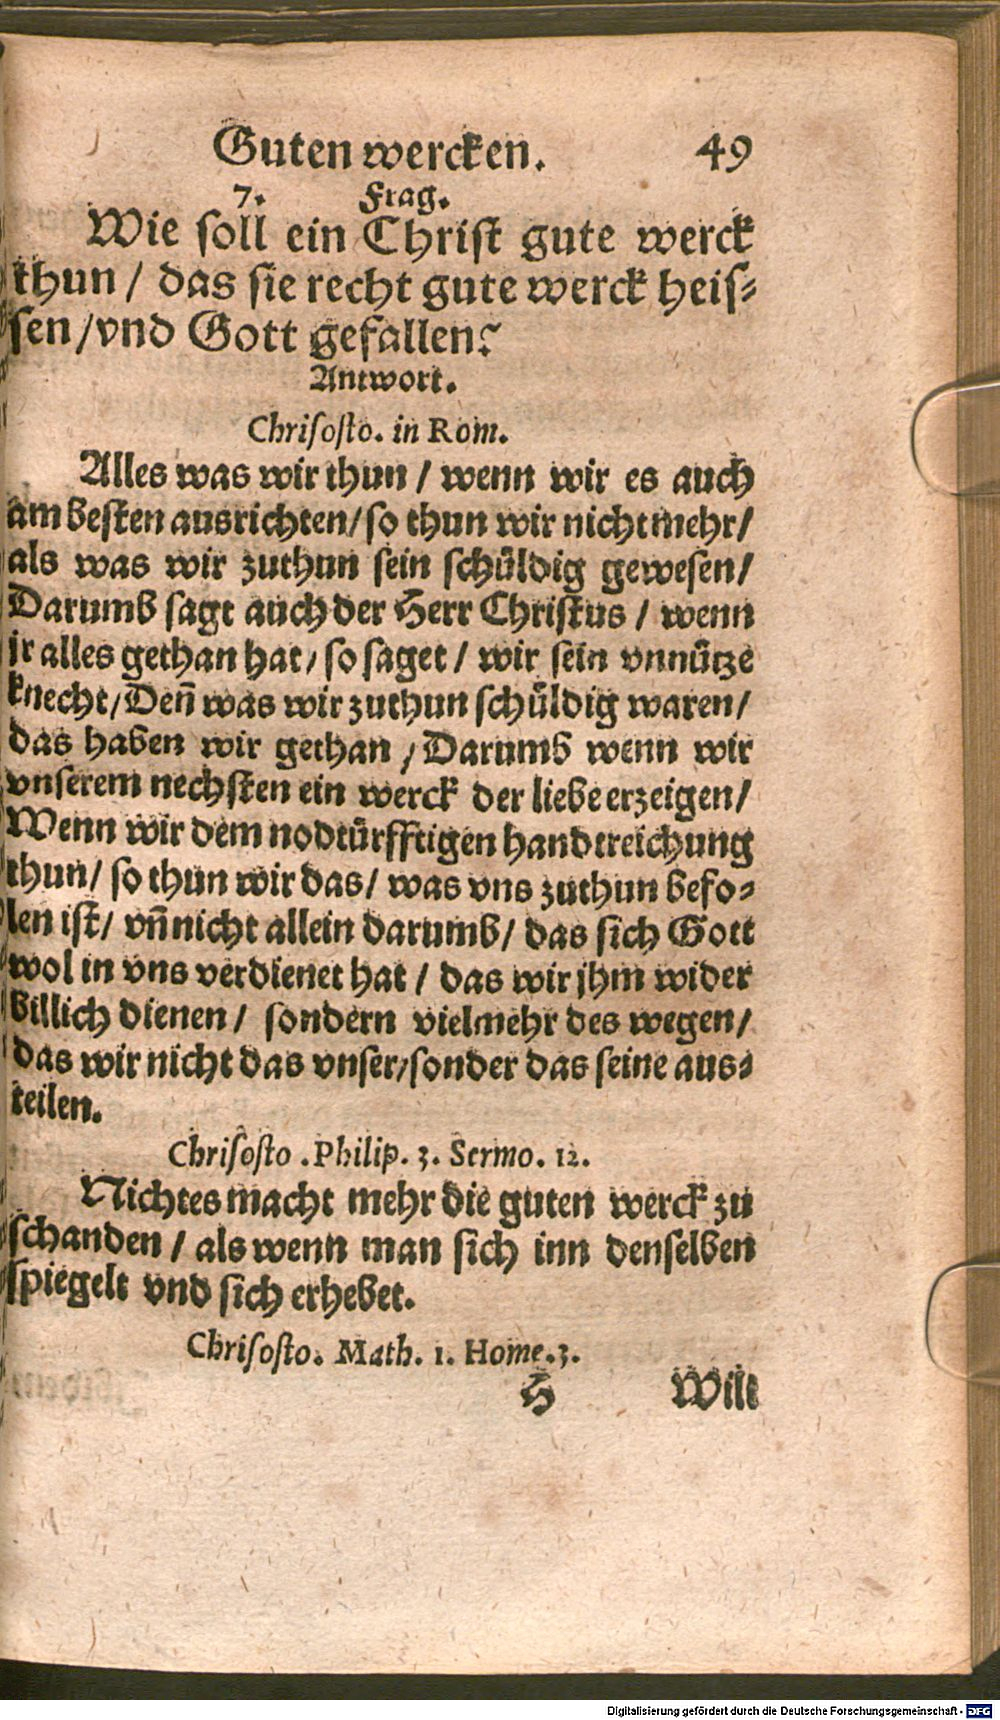 Guten wercken. 49
7. Frag.
Wie soll ein Christ gute werck
thun / das sie recht gute werck heis⸗
sen /vnd Gott gefallen?
Antwort.
Chrisosto. in Rom.
Alles was wir thun / wenn wir es auch
am besten ausrichten/ so thun wir nicht mehr/
als was wir zuthun sein schüldig gewesen/
Darumb sagt auch der Herr Christus / wenn
jr alles gethan hat/ so saget / wir sein vnnütze
knecht/ Deñ was wir zuthun schüldig waren/
das haben wir gethan / Darumb wenn wir
vnserem nechsten ein werck der liebe erzeigen/
Wenn wir dem nodtürfftigen handtreichung
thun/ so thun wir das/ was vns zuthun befo⸗
len ist/ vñ nicht allein darumb/ das sich Gott
wol in vns verdienet hat / das wir jhm wider
billich dienen/ sondern vielmehr des wegen/
das wir nicht das vnser/sonder das seine aus⸗
teilen.
Chrisosto .Philip. 3. Sermo. 12.
Nichtes macht mehr die guten werck zu
schanden / als wenn man sich inn denselben
spiegelt vnd sich erhebet.
Chrisosto. Math. 1. Home.3.
H Wilt
Digitalisierung gefördert durch die Deutsche Forschungsgemeinschaft - DFG